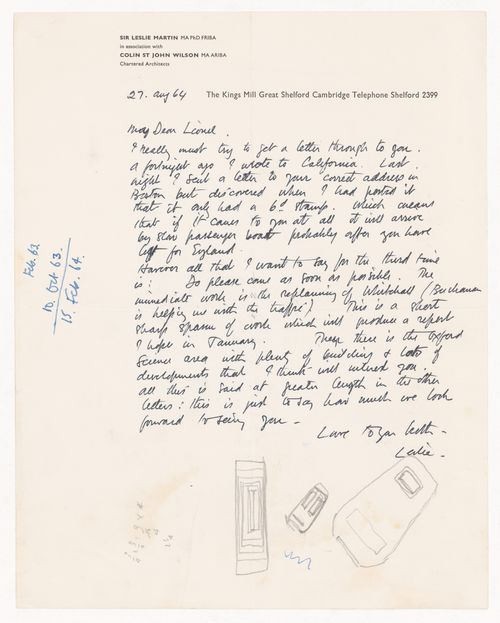 SIR LESLIE MARTIN MA PhD FRIBA
in association with
COLIN ST JOHN WILSON MA ARIBA
Chartered Architects
27. Aug 64
The Kings Mill Great Shelford Cambridge Telephone Shelford 2399
My Dear Lionel.
I really must try to get a letter through to you.
a fortnight ago I wrote to California. Last
night I sent a letter to your correct address in
Boston but discovered when I had posted it
that it only had a 6d stamp. Which means
that if it comes to you at all it will arrive
by slow passenger boat probably after you have
left for England.
However all that I want to say for the third time
is: Do please come as soon as possible. The
immediate work is the replanning of Whitehall (Buchanan
is helping us with the traffic) This is a short
sharp spasm of work which will produce a report
I hope in January. There is the Oxford
Science area with plenty of building & lots of
developments that I think will interest you.
all this is said at greater length in the other
letters: this is just to say how much we look
forward to seeing you -
Love to you both -
Leslie -
Feb. 63.
10. Oct 63.
15. Feb. 64.